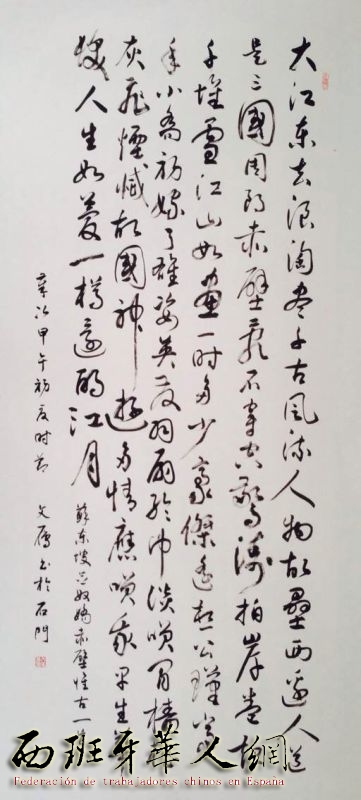 大江东去浪淘尽千古風流人物故壘西邊人道
是三國周郎赤壁乱石穿空驚濤拍岸卷起
千堆雪江山如畫一时多少豪傑遥想公瑾當
年小喬初嫁了雄姿英发羽扇纶巾谈笑间檣
灰飛煙滅故國神遊多情應笑我早生
髮人生如夢一樽還酹江月
蘇东坡念奴嬌赤壁怀古一
甲午初夏时节 文雁书於石門
西班牙華人網
Federación de trabajadores chinos en España